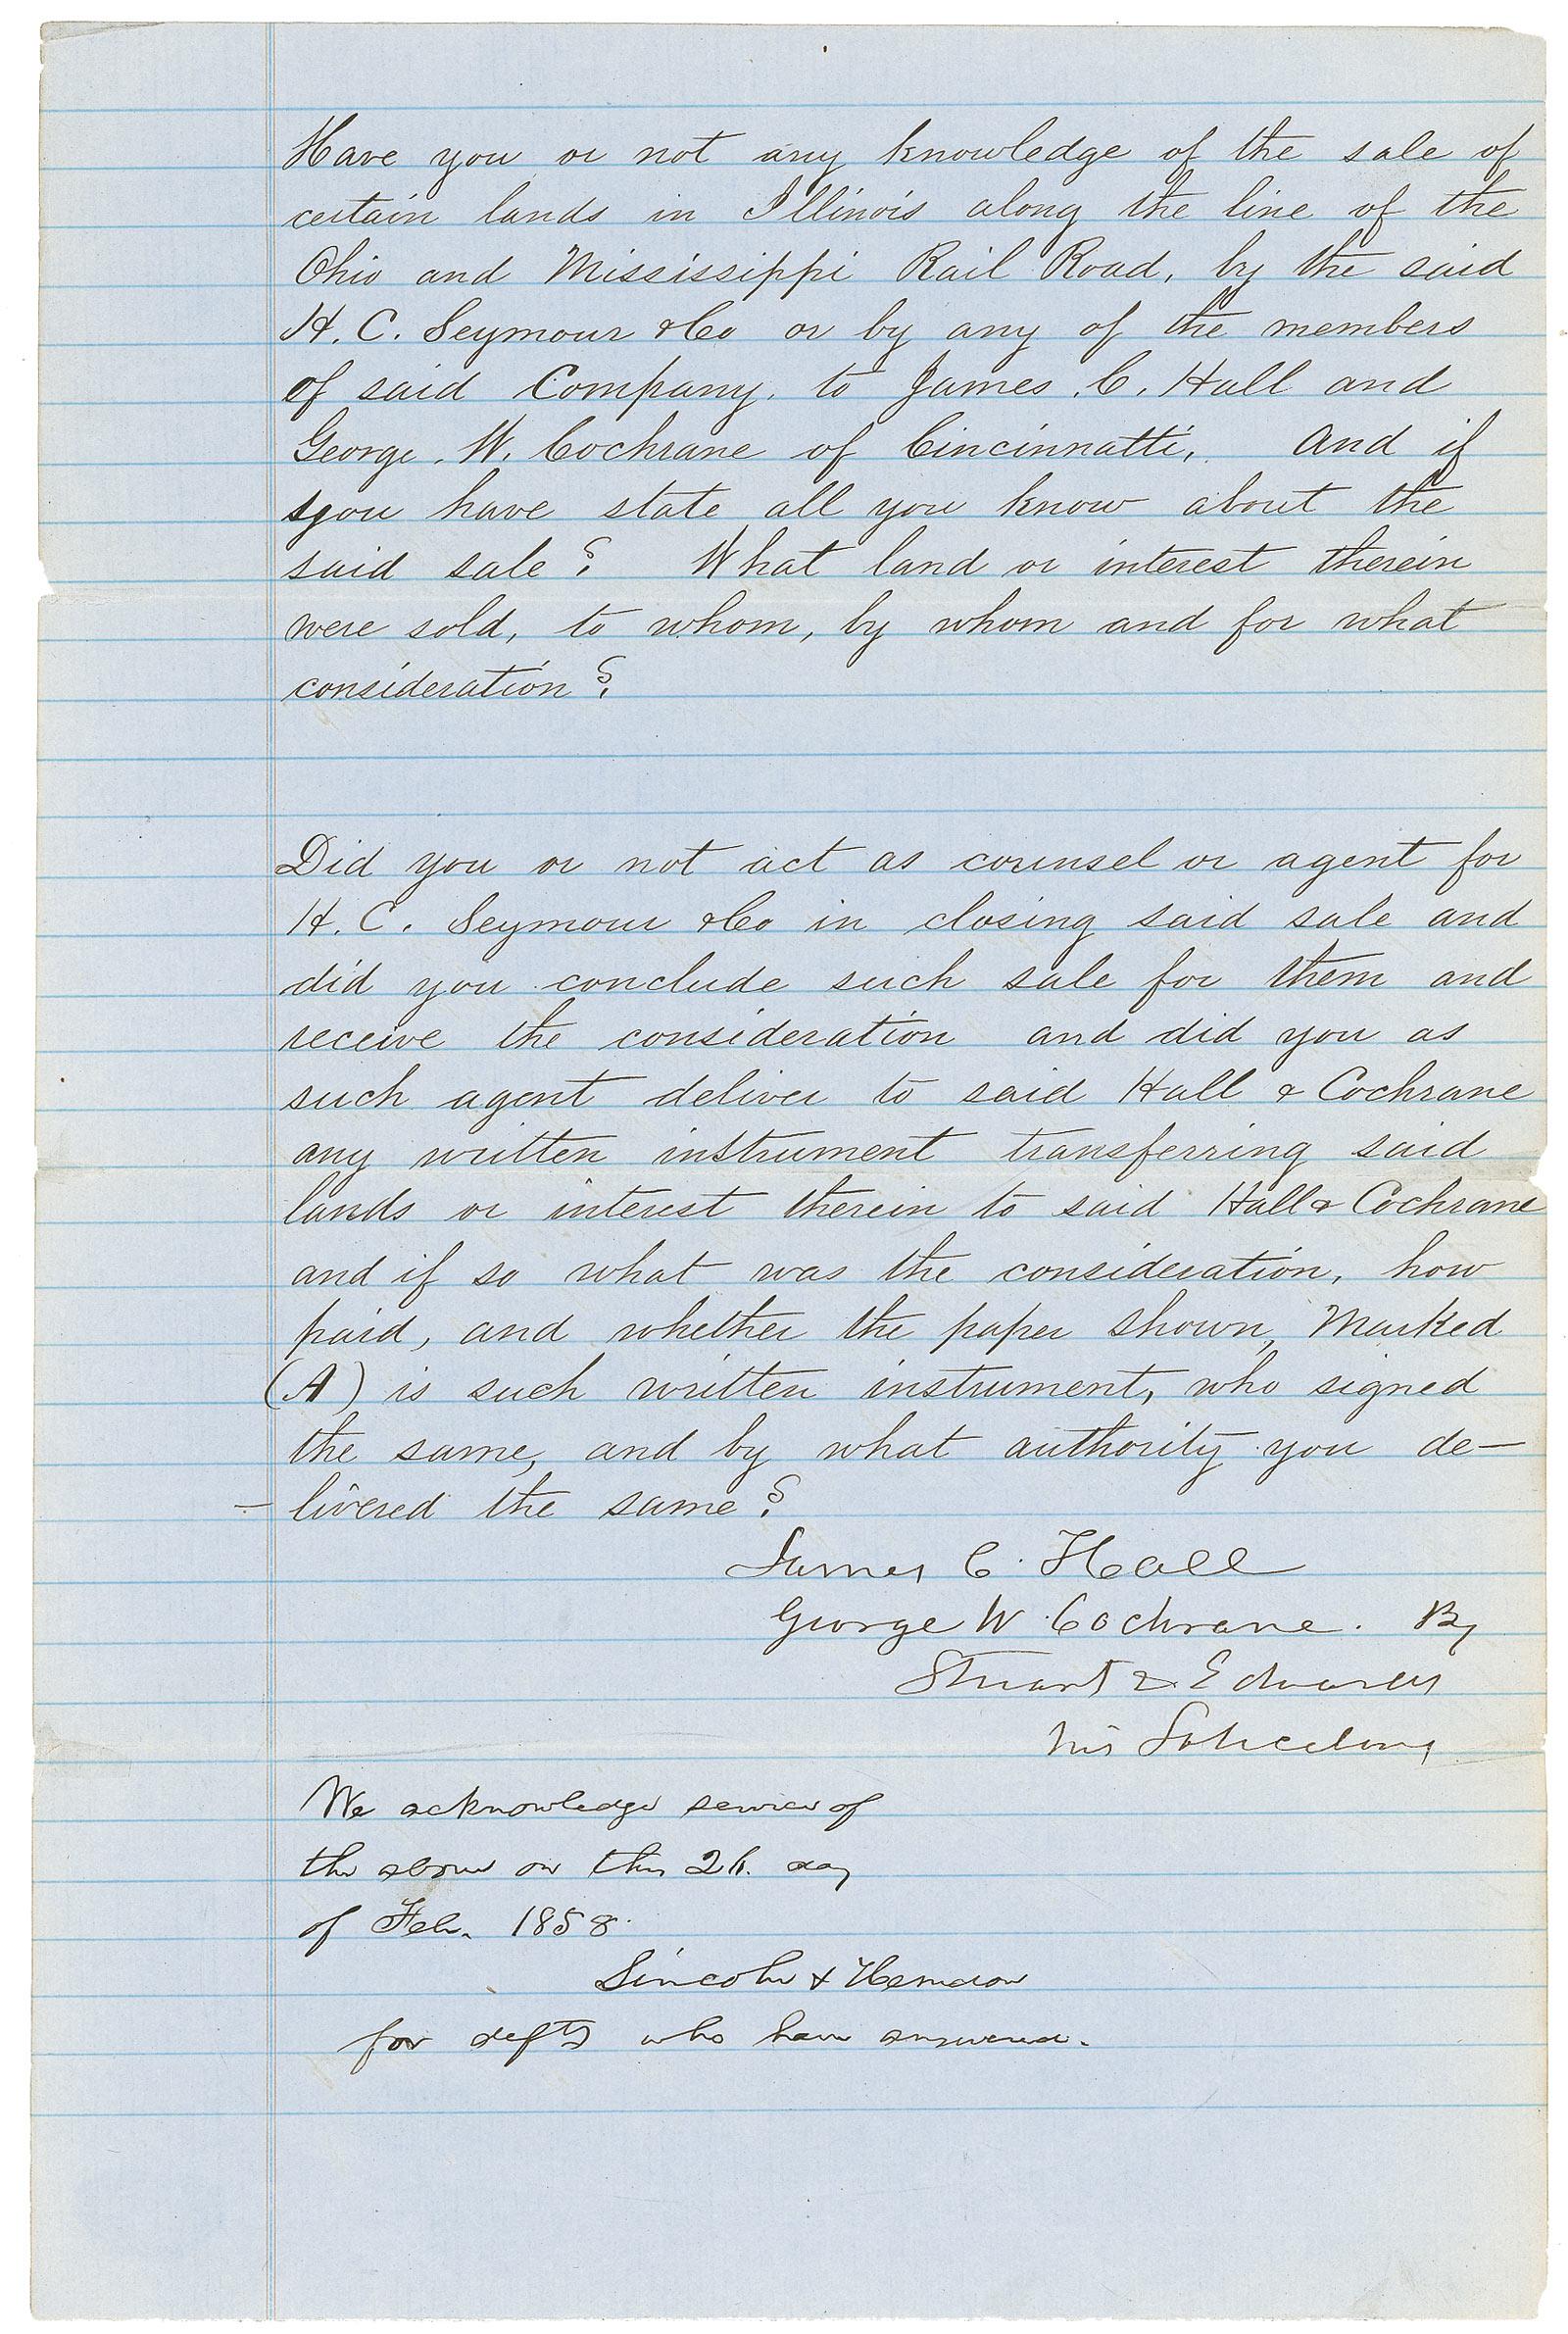 Have you or not any knowledge of the sale of
certain lands in Illinois along the line of the
Ohio and Mississippi Rail Road, by the said
H. C. Seymour & Co or by any of the members
of said Company, to James C. Hall and
George W. Cochrane of Cincinnatti, And if
you have state all you know about the
said sale? What land or interest therein
were sold, to whom, by whom and for what
consideration?
Did you or not act as counsel or agent for
H. C. Seymour & Co in closing said sale and
did you conclude such sale for them and
receive the consideration and did you as
such agent deliver to said Hall & Cochrane
any written instrument transferring said
lands or interest therein to said Hall & Cochrane
and if so what was the consideration, how
paid, and whether the paper shown, Marked
(A) is such written instrument, who signed
the same, and by what authority you de-
-livered the same?
James C. Hall
George W. Cochrane. By
Stuart & Edwards
his Solicitors
We acknowledge service of
the above on this 26. day
of Feb. 1858.
Lincoln & Herndon
for defts who have answered.